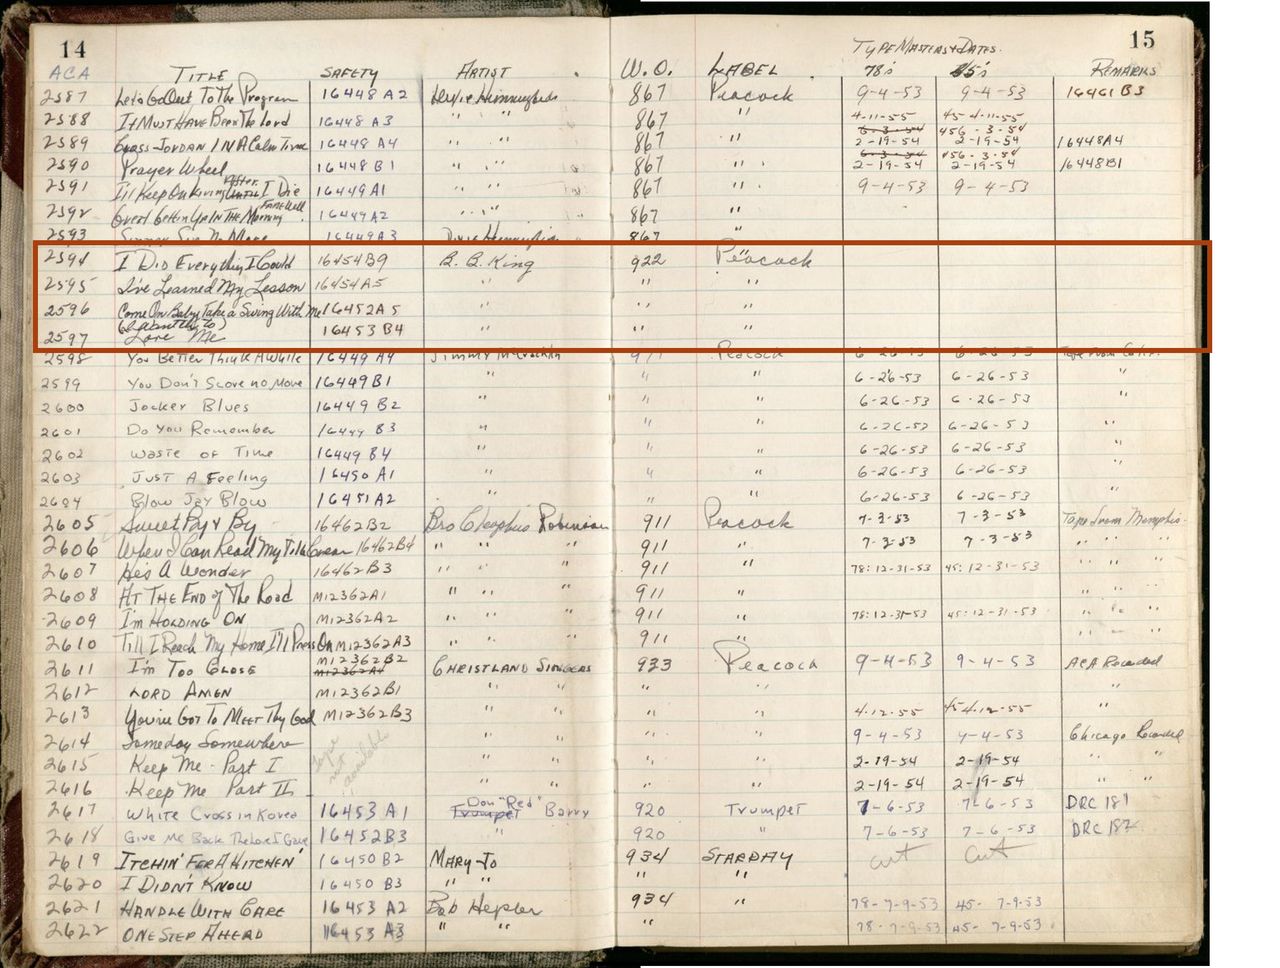 14
15
TYPE MASTERS & DATES
ACA TITLE SAFETY ARTIST W.O. LABEL 78's 45's REMARKS
2587 Let's Go Out To The Program 16448 A2 Dixie Hummingbirds 867 Peacock 9-4-53 9-4-53 16461 B3
2588 It Must Have Been The Lord 16448 A3 " " 867 " 4-11-55 45 4-11-55
2589 Cross-Jordan IN A Calm Time 16448 A4 " " 867 " 6-3-54 2-19-54 456-3-54 2-19-54 16448A4
2590 Prayer Wheel 16448 B1 " " 867 " 6-3-54 2-19-54 456-3-54 2-19-54 16448B1
2591 I'll Keep On Living After Until I Die 16449A1 " " 867 " 9-4-53 9-4-53
2592 Great Gettin Up In The Morning Farewell 16449A2 " " 867 "
2593 No More 16449A3 Dixie 867
2594 I Did Everything I Could 16454B9 B. B. King 922 Peacock
2595 I've Learned My Lesson 16454A5 " " "
2596 Come On Baby Take a Swing With Me 16452A5 " " "
2597 Love Me 16453 B4 " " "
2598 You Better Think Awhile 16449 A4 Jimmy 911 Peacock 6-26-53 6-26-53 Tape From
2599 You Don't Score no More 16449B1 " " " 6-26-53 6-26-53 "
2600 Jocker Blues 16449 B2 " " " 6-26-53 6-26-53 "
2601 Do You Remember 16449 B3 " " " 6-26-53 6-26-53 "
2602 Waste of Time 16449 B4 " " " 6-26-53 6-26-53 "
2603 Just A Feeling 16450 A1 " " " 6-26-53 6-26-53 "
2604 Blow Jay Blow 16451 A2 " " " 6-26-53 6-26-53 "
2605 Sweet By & By 16462B2 Bro Cleophus Robinson 911 Peacock 7-3-53 7-3-53 Tape from Memphis
2606 When I Can Read My Title Clear 16462B4 " " " 911 " 7-3-53 7-3-53 " " "
2607 He's A Wonder 16462B3 " " " 911 " 78: 12-31-53 45: 12-31-53 " " "
2608 At The End of The Road M12362A1 " " " 911 " " " "
2609 I'm Holding On M12362A2 " " " 911 " 78: 12-31-53 45: 12-31-53 " " "
2610 Till I Reach My Home I'll Press On M12362A3 " " " 911 " " " "
2611 I'm Too Close M12362B2 M12362A4 CHRISTLAND SINGERS 933 Peacock 9-4-53 9-4-53 ACA Recorded
2612 LORD AMEN M12362B1 " " " " "
2613 You've Got To Meet Thy God M12362B3 " " " " 4-12-55 45 4-12-55 "
2614 Someday Somewhere tape not available " " " " 9-4-53 9-4-53 Chicago Recorded
2615 Keep Me - Part I " " " " 2-19-54 2-19-54 " "
2616 Keep Me Part II " " " " 2-19-54 2-19-54 " "
2617 White Cross in Korea 16453 A1 Trumpet Don "Red" Barry 920 Trumpet 7-6-53 7-6-53 DRC 181
2618 Give Me Back The Love I Gave 16452B3 " 920 " 7-6-53 7-6-53 DRC 182
2619 Itchin' Fer A Hitchen' 16450 B2 Mary-Jo 934 STARDAY cut cut
2620 I Didn't Know 16450 B3 " " " "
2621 Handle With Care 16453 A2 Bob Hepler 934 " 78- 7-9-53 45- 7-9-53
2622 One Step Ahead 16453 A3 " " " 78-7-9-53 45- 7-9-53